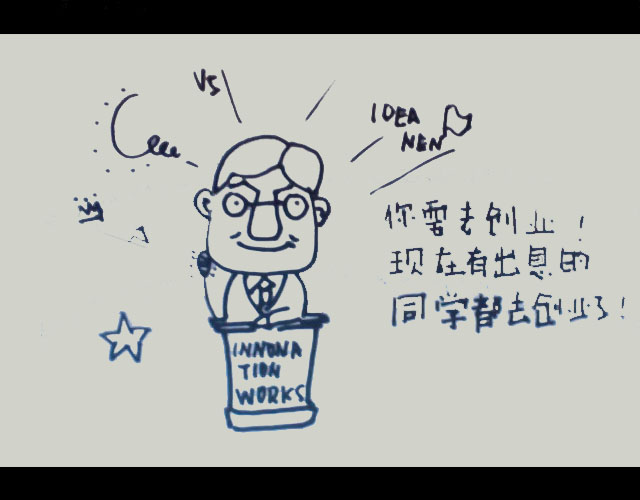 VS
IDEA
NEN
你需去创业！
现在有出息的
同学都去创业了！
INNONA
TION
WORKS